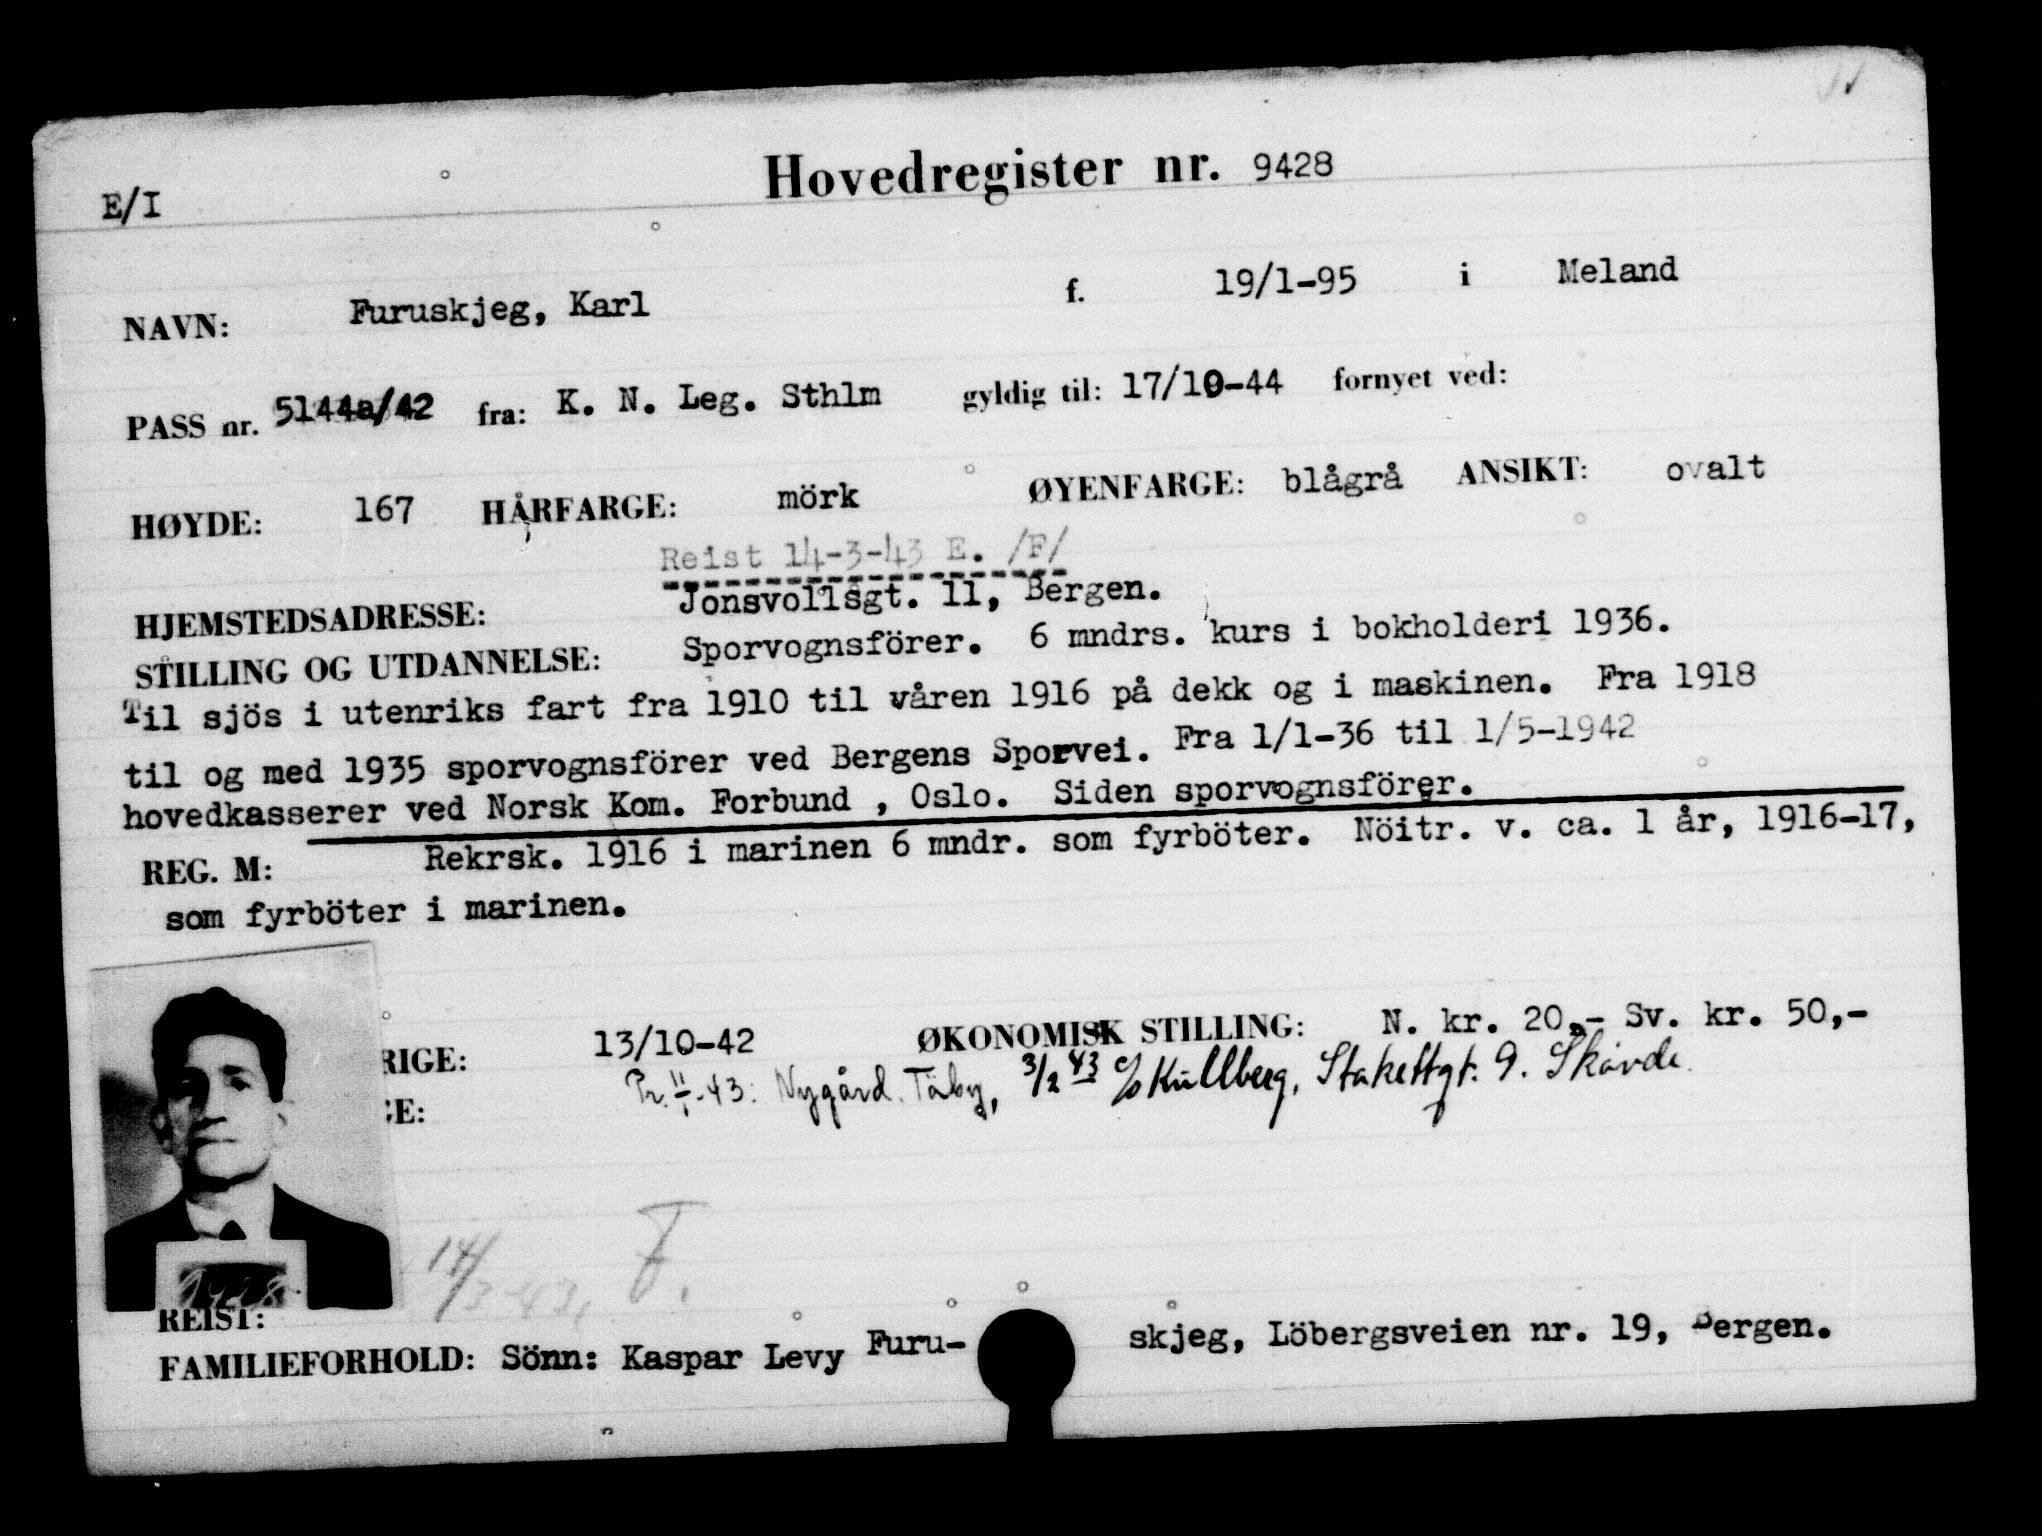 E/I
Hovedregister nr. 9428
NAVN: Furuskjeg, Karl f. 19/1-95 i Meland
PASS nr. 5144a/42 fra: K. N. Leg. Sthlm gyldig til: 17/10-44 fornyet ved:
HØYDE: 167 HÅRFARGE: mörk ØYENFARGE: blågrå ANSIKT: ovalt
Reist 14-3-43 E. /F/
HJEMSTEDSADRESSE: Jonsvollsgt. 11, Bergen.
STILLING OG UTDANNELSE: Sporvognsförer. 6 mndrs. kurs i bokholderi 1936.
Til sjös i utenriks fart fra 1910 til våren 1916 på dekk og i maskinen. Fra 1918
til og med 1935 sporvognsförer ved Bergens Sporvei. Fra 1/1-36 til 1/5-1942
hovedkasserer ved Norsk Kom. Forbund , Oslo. Siden sporvognsförer.
REG. M: Rekrsk. 1916 i marinen 6 mndr. som fyrböter. Nöitr. v. ca. 1 år, 1916-17,
som fyrböter i marinen.
RIGE: 13/10-42 ØKONOMISK STILLING: N. kr. 20,- Sv. kr. 50,-
GE: Pr. 11/1-43: Nygård. Täby, 3/2 43 c/o Kullberg, Stakettgt. 9. Skövde.
9428
14/3-43. F.
REIST:
FAMILIEFORHOLD: Sönn: Kaspar Levy Furu- skjeg, Löbergsveien nr. 19, Bergen.